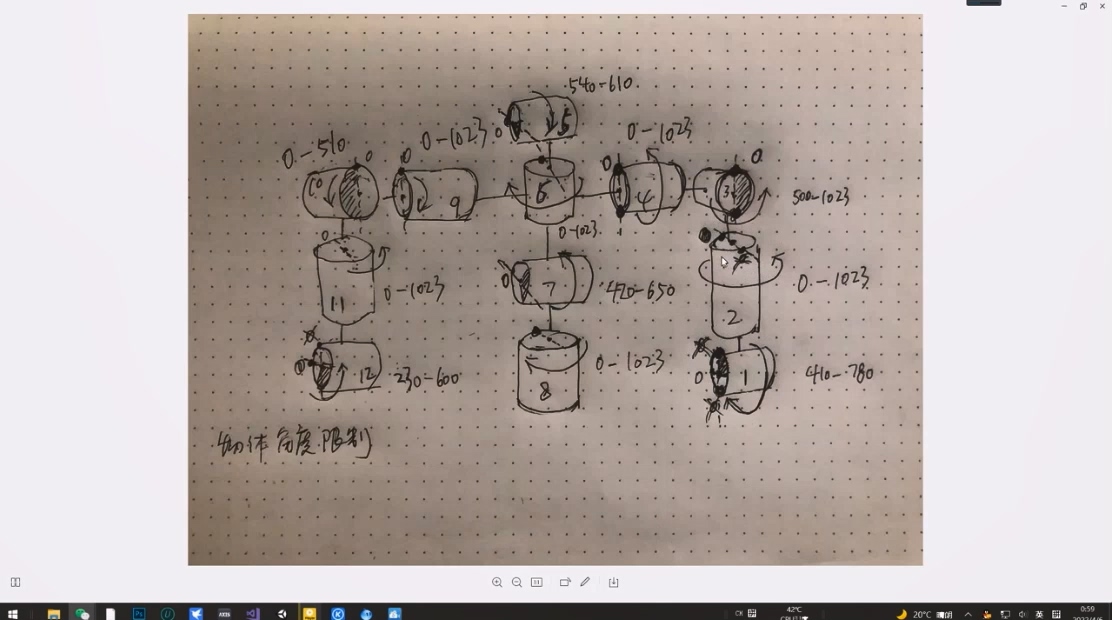 540-610
0-510
0
0-1023
0
5
0-1023
0
0
0
10
9
6
4
3
500-1023
0
0-1023
11
0-1023
0
7
420-650
2
0-1023
0
12
230-600
8
0-1023
0
1
410-780
物体角度限制
CK
42℃
20℃
英
0:59